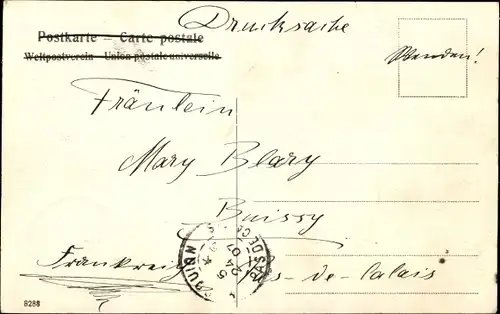 Drucksache
Postkarte — Carte postale
Weltpostverein — Union postale universelle
Wenden!
Fräulein
Mary Blary
Buissy
Frankreich Pas-de-Calais
PAS DE CA
QUION
5
24
07
8288